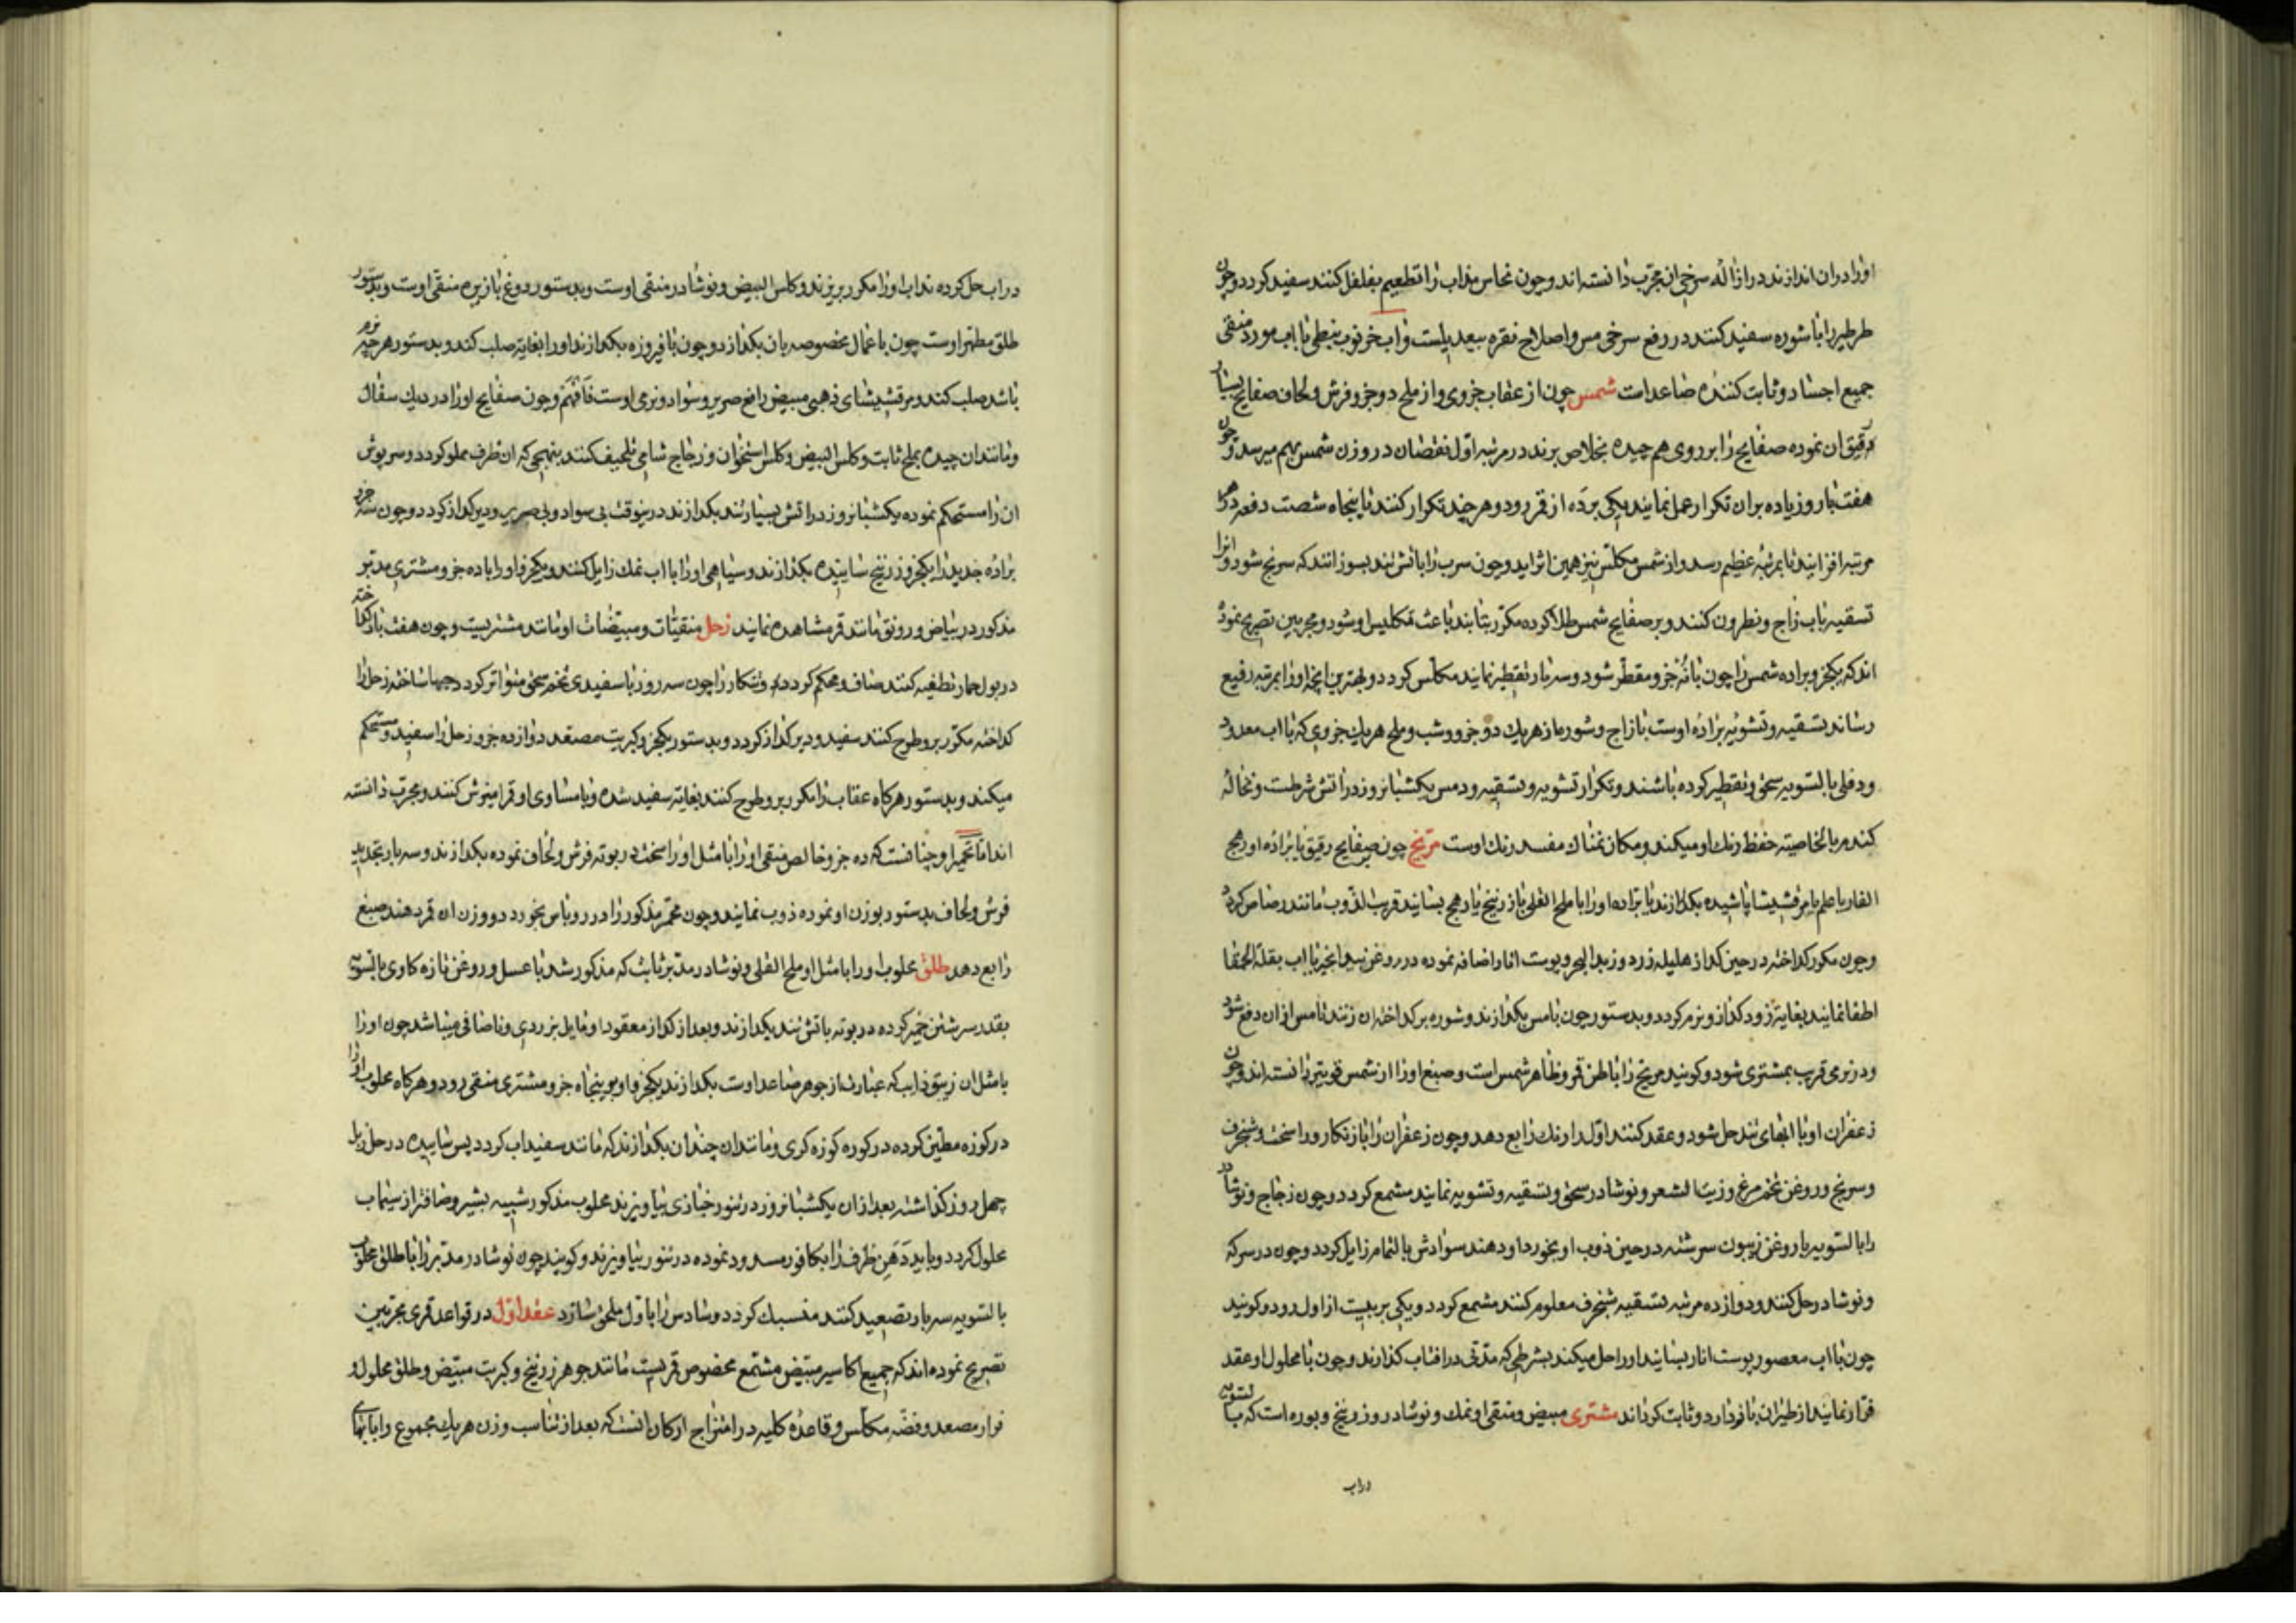 اورا دران اندازند در ازاله سرخی ان مجرب دانسته اند و چون نحاس مذاب را تطعیم بفلفل کنند سفید کردد و چون
طرطیر را با شوره سفید کنند در رفع سرخی مس و اصلاح نقره بیعدیلست و اب خرنوب نبطی با اب مورد منقی
جمیع اجساد و ثابت کننده صاعداست شمس چون از عقاب جزوی و از ملح دو جزو فرش و لحاف صفایح بسیار
رقیق ان نموده صفایح را بر روی هم چیده بخلاص برند در مرتبه اول نقصان در وزن شمس بهم میرسد و چون
هفت بار و زیاده بران تکرار عمل نمایند یکی بر ده از قمر رود و هر چند تکرار کنند تا پنجاه شصت دفعه در هر
مرتبه افزایند تا بمرتبه عظیم رسد و از شمس مکلس نیز همین اثر اید و چون سرب را باتش تند بسوزانند که سرنج شود و انرا
تسقیه باب زاج و نطرون کنند و بر صفایح شمس طلا کرده مکرر بتابند باعث تکلیس او شود و مجربین تصریح نموده
اند که یکجزو براده شمس را چون با نه جزو مقطر شود و سه بار تقطیر نمایند مکلس کردد و بهترین انچه اورا بمرتبه رفیع
رساند تسقیه و تشویه براده اوست با زاج و شورها از هر یك دو جزو و شب و ملح هر یك جزوی که با اب معدود
ودفلی بالسویه سحق و تقطیر کرده باشند و تکرار تشویه و تسقیه و دمس یکشبانروز در اتش شرطست و نخاله
کندم بالخاصیته حفظ رنك او میکند و مکان نمناك مفسد رنك اوست مریخ چون صفایح رقیق یا براده او رهج
الفار یا علم یا مرقشیشا پاشیده بکدازند یا براده اورا با ملح القلی یا زرنیخ یا رهج بسایند قریب الذوب مانند رصاص کردد
و چون مکرر کداخته در حین کداز هلیله زرد و زبد البحر و پوست انار اضافه نموده در روغن بید انجیر یا اب بقلة الحمقا
اطفا نمایند بغایة زود کداز و نرم کردد و بدستور چون با مس بکدازند و شوره بر کداخته ان زنند تا مس از ان دفع شود
و در نرمی قریب بمشتری شود و کویند مریخ را باطن قمر و ظاهر شمس است و صبغ اورا از شمس قویتر دانسته اند و چون
زعفران او با ابهای تند حل شود و عقد کنند اول را رنك رابع دهد و چون زعفران را با زنکار و راسخت و شنجرف
و سرنج و روغن تخم مرغ و زیت الشعر و نوشادر سحق و تسقیه و تشویه نمایند مشمع کردد و چون زجاج و نوشادر
را بالسویه با روغن زیتون سرشته در حین ذوب او بخورد او دهند سوادش بالتمام زایل کردد و چون در سرکه
و نوشادر حل کنند و دوازده مرتبه تسقیه شنجرف معلوم کنند مشمع کردد و یکی بر بیست از اول رود و کویند
چون با اب معصور پوست انار بسایند اورا حل میکند بشرطی که مدتی در افتاب کذارند و چون با محلول او عقد
فرار نمایند از طیران باز دارد و ثابت کرداند مشتری مبیض و منقی او نمك و نوشادر و زرنیخ و بوره است که بالسویه
دراب
در اب حل کرده مذاب اورا مکرر بریزند و کلس البیض و نوشادر منقی اوست و بدستور دوغ با زیره منقی اوست و بدستور
طلق مطهر اوست چون با عمال مخصوصه بان بکدازد و چون با فیروزه بکدازند اورا بغایة صلب کند و بدستور هر چه نرم
باشد صلب کند و مرقشیشای ذهبی مبیض رافع صریر و سواد و نرمی اوست فافهم و چون صفایح اورا در دیك سفال
و مانند ان چیده بملح ثابت و کلس البیض و کلس استخوان و زجاج شامی تلحیف کنند بنهجی که ان ظرف مملو کردد و سرپوش
ان را مستحکم نموده یکشبانروز در اتش بسیار تند بکدازند درینوقت بی سواد و بی صریر و دیر کداز کردد و چون سه جزو
براده حدید را بیکجزو زرنیخ ساییده بکدازند و سیاهی اورا با اب نمك زایل کنند و یکجزو اورا با ده جزو مشتری مدبر
مذکور در بیاض و رونق مانند قمر مشاهده نمایند زحل منقیات و مبیضات او مانند مشتریست و چون هفت بار کداخته
در بول حمار تطفیه کنند صاف و محکم کردد و تنکار را چون سه روز با سفیدی تخم سحق متواتر کردد جهة ساخته زحل را
کداخته مکرر برو طرح کنند سفید و دیر کداز کردد و بدستور یکجزو کبریت مصعد دوازده جزو زحل را سفید و مستحکم
میکند و بدستور هرکاه عقاب را مکرر برو طرح کنند بغایة سفید شده و با مساوی او قمر امیزش کنند و مجرب دانسته
اند اما تحمیر او چنانست که ده جزو خالص منقی اورا با مثل او راسخت در بوته فرش و لحاف نموده بکدازند و سه بار تجدید
فرش و لحاف بدستور بوزن او نموده ذوب نمایند و چون محمر مذکور را در روباس بخورد دو وزن ان قمر دهند صبغ
رابع دهد طلق محلوب را با مثل او ملح القلی و نوشادر مدبر ثابت که مذکور شد با عسل و روغن تازه کاوی بالسویه
بقدر سرشتن خمیر کرده در بوته باتش تند بکدازند و بعد از کداز معقود او مایل بزردی و ناصافی میباشد چون اورا
با مثل ان زیبق ذایب که عبارت از جوهر صاعد اوست بکدازند یکجزو او بر پنجاه جزو مشتری منقی رود و هرکاه محلوب اورا
در کوزه مطین کرده در کوره کوزه کری و مانند ان چندان بکدازند که مانند سفیداب کردد پس ساییده در حل زبل
چهل روز کذاشته بعد از ان یکشبانروز در تنور خبازی بیاویزند محلوب مذکور شبیه بشیر و صافتر از سیماب
محلول کردد و باید دهن ظرف را بکافور مسدود نموده در تنور بیاویزند و کویند چون نوشادر مدبر را با طلق محلوب
بالسویه سه بار تصعید کنند منسبك کردد و سادس را با اول ملحق سازد عقد اول در قواعد قمری مجربین
تصریح نموده اند که جمیع اکاسیر مبیض مشمع مخصوص قمریست مانند جوهر زرنیخ و کبریت مبیض و طلق محلول و
فرار مصعد و فضه مکلس و قاعده کلیه در امتزاج ارکان انست که بعد از تناسب وزن هر یك مجموع را بابهای